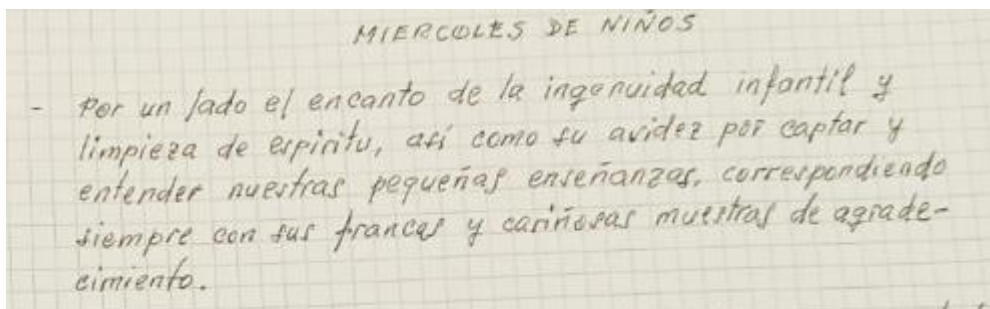 MIERCOLES DE NIÑOS
- Por un lado el encanto de la ingenuidad infantil y
limpieza de espiritu, así como su avidez por captar y
entender nuestras pequeñas enseñanzas, correspondiendo
siempre con sus francas y cariñosas muestras de agrade-
cimiento.